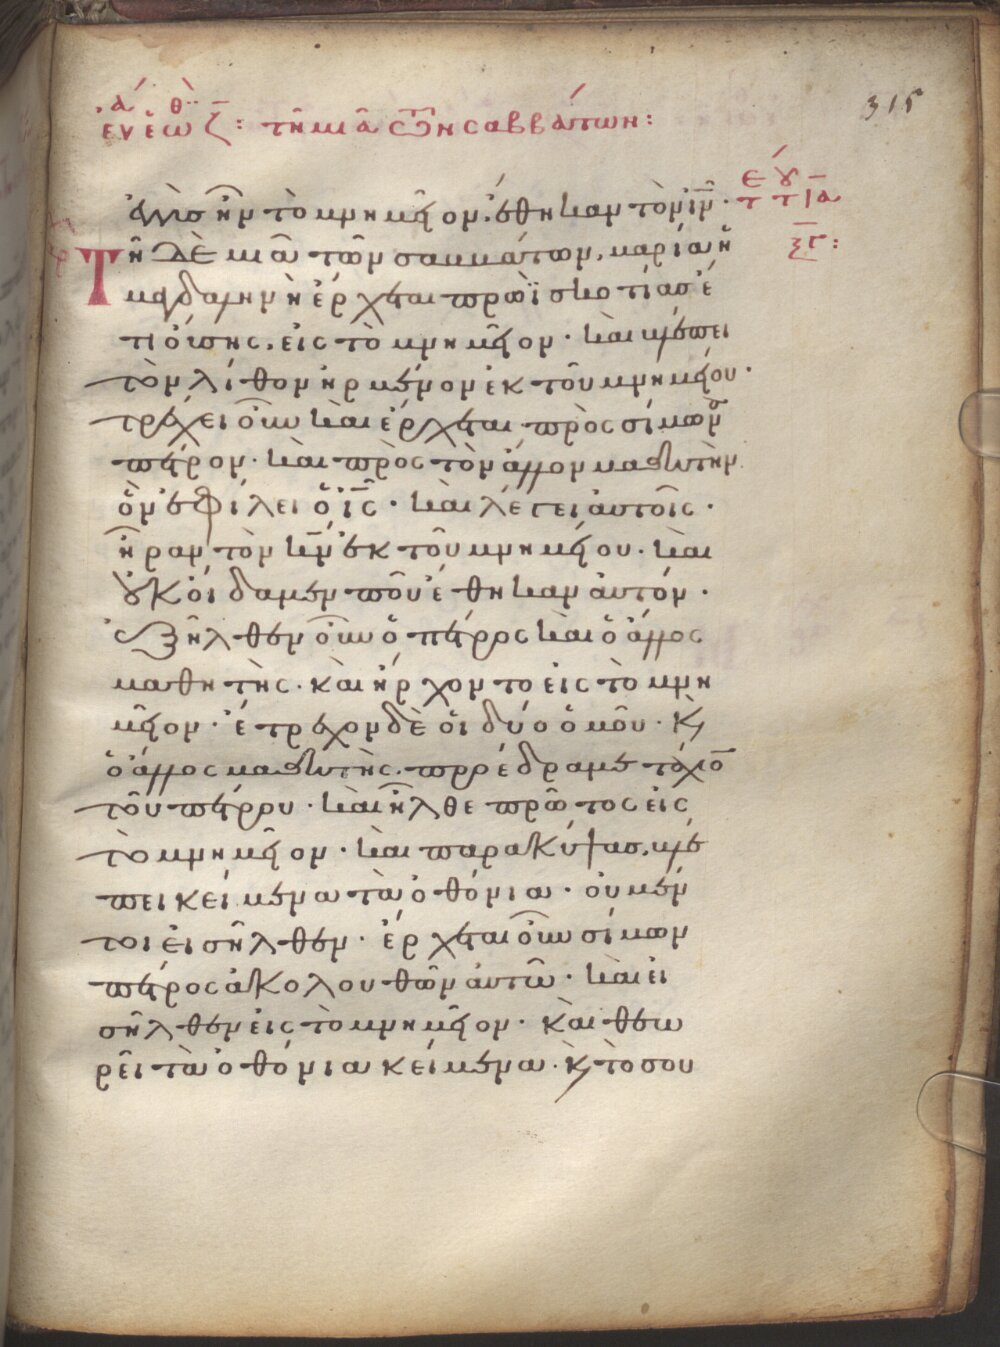 315
ἑωθ ζ: τῆ μιᾶ τῶν σαββάτων:
ὅτι ἐγγὺς ἦν τὸ μνημεῖον, ἔθηκαν τὸν ἰν̅.
Τῆ δὲ μιᾶ τῶν σαββάτων, μαρία ἡ
μαγδαληνὴ ἔρχεται πρωῒ σκοτίας ἔ
τι οὔσης, εἰς τὸ μνημεῖον. καὶ βλέπει
τὸν λίθον ἠρμένον ἐκ τοῦ μνημείου.
τρέχει οὖν καὶ ἔρχεται πρὸς σίμωνα
πέτρον. καὶ πρὸς τὸν ἄλλον μαθητὴν
ὃν ἐφίλει ὁ ις̅. καὶ λέγει αὐτοῖς.
ἦραν τὸν κν̅ ἐκ τοῦ μνημείου. καὶ
οὐκ οἴδαμεν ποῦ ἔθηκαν αὐτόν.
ἐξῆλθεν οὖν ὁ πέτρος καὶ ὁ ἄλλος
μαθητὴς. καὶ ἤρχοντο εἰς τὸ μνη
μεῖον. ἔτρεχον δὲ οἱ δύο ὁμοῦ. κ̀
ὁ ἄλλος μαθητὴς. προέδραμε τάχιον
τοῦ πέτρου. καὶ ἦλθε πρῶτος εἰς
τὸ μνημεῖον. καὶ παρακύψας, βλέ
πει κείμενα τὰ ὀθόνια. οὐ μέν
τοι εἰσῆλθεν. ἔρχεται οὖν σίμων
πέτρος ἀκολουθῶν αὐτῶ. καὶ εἰ
σῆλθεν εἰς τὸ μνημεῖον. καὶ θεω
ρεῖ τὰ ὀθόνια κείμενα. κ̀ τὸ σου